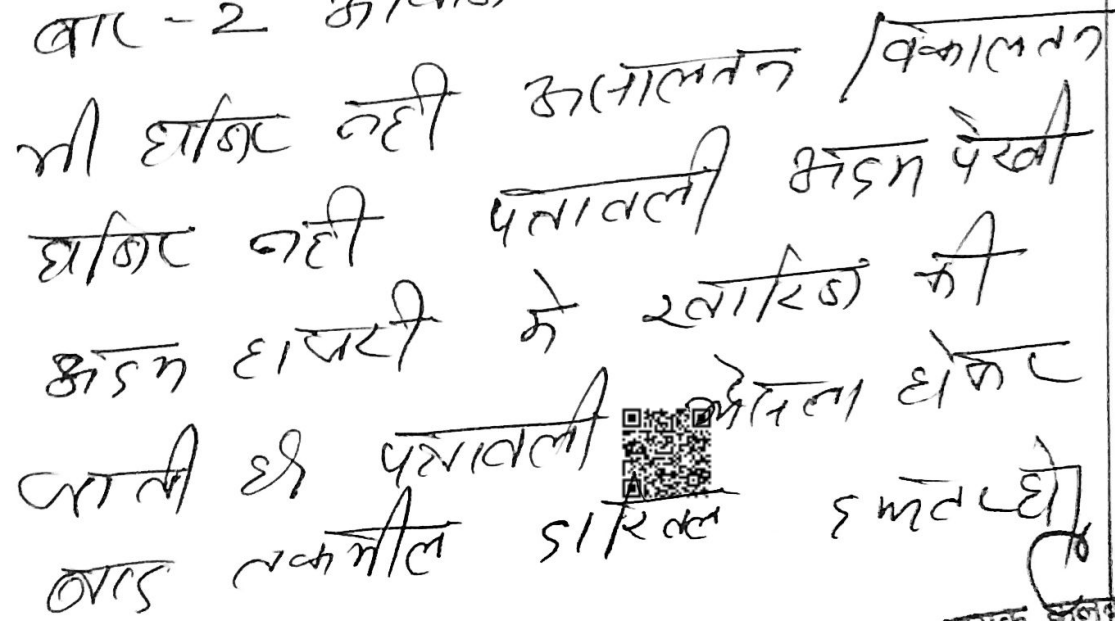 बार-2 आवाज
भी हाजिर नही असालतन / वकालतन
हाजिर नही पत्रावली अदम पेरवी
अदम हाजरी मे खारिज की
जाती है पत्रावली फैसला होकर
बाद तकमील दाखिल दफ्तर हो